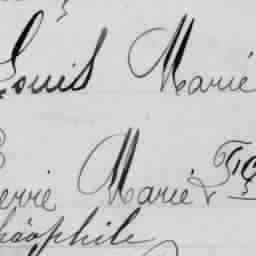 Louis Marié
ierre Marié
héophile